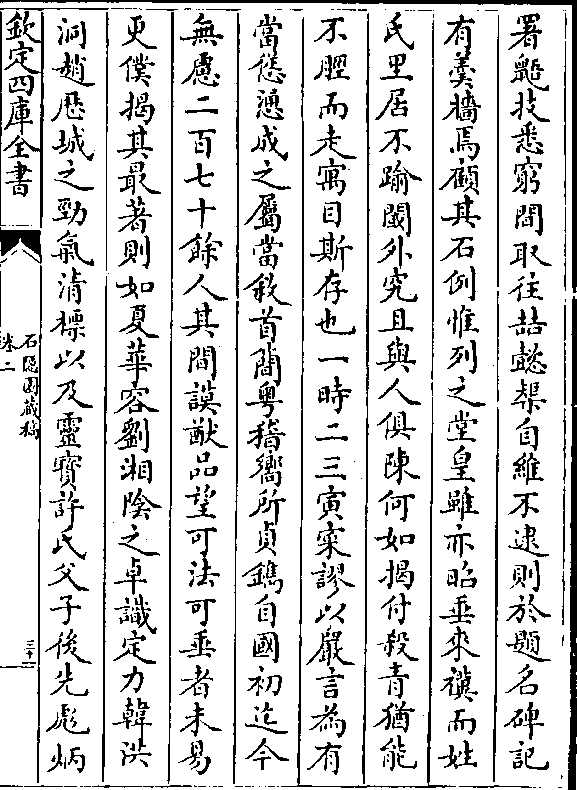 署豔技悉窮間取往喆懿槼自維不逮則於題名碑記
有羮牆焉顧其石例惟列之堂皇雖亦昭垂來禩而姓
氏里居不踰閾外究且與人俱陳何如揭付殺青猶能
不脛而走寓目斯存也一時二三寅寀謬以嚴言為有
當慫慂成之屬當敘首簡粤稽嚮所貞鐫自國初迄今
無慮二百七十餘人其間謨猷品望可法可垂者未易
更僕揭其最著則如夏華容劉湘陰之卓識定力韓洪
洞趙厯城之勁氣清標以及靈寳許氏父子後先彪炳
欽定四庫全書
石隠園藏稿
卷二
三十二